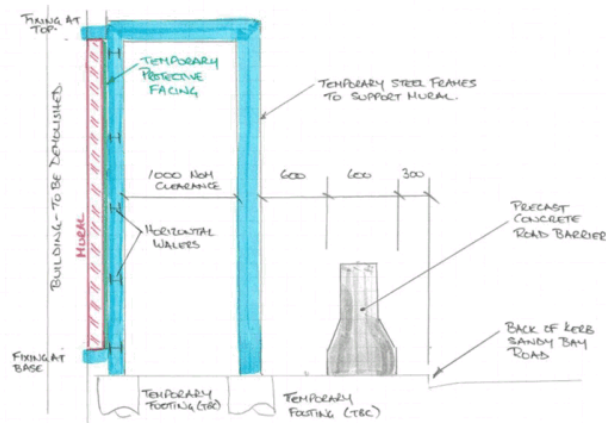 FIXING AT
TOP.
TEMPORARY
PROTECTIVE
FACING
TEMPORARY STEEL FRAMES
TO SUPPORT MURAL.
BUILDING - TO BE DEMOLISHED.
MURAL
1000 NOM
CLEARANCE
600
600
300
HORIZONTAL
WALERS
PRECAST
CONCRETE
ROAD BARRIER
BACK OF KERB
SANDY BAY
ROAD
FIXING AT
BASE
TEMPORARY
FOOTING (TBC)
TEMPORARY
FOOTING (TBC)